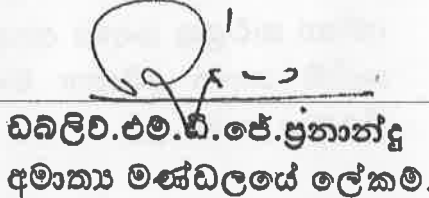 ඩබ්ලිව්.එම්.ඩී.ජේ.ප්‍රනාන්දු
අමාත්‍ය මණ්ඩලයේ ලේකම්.